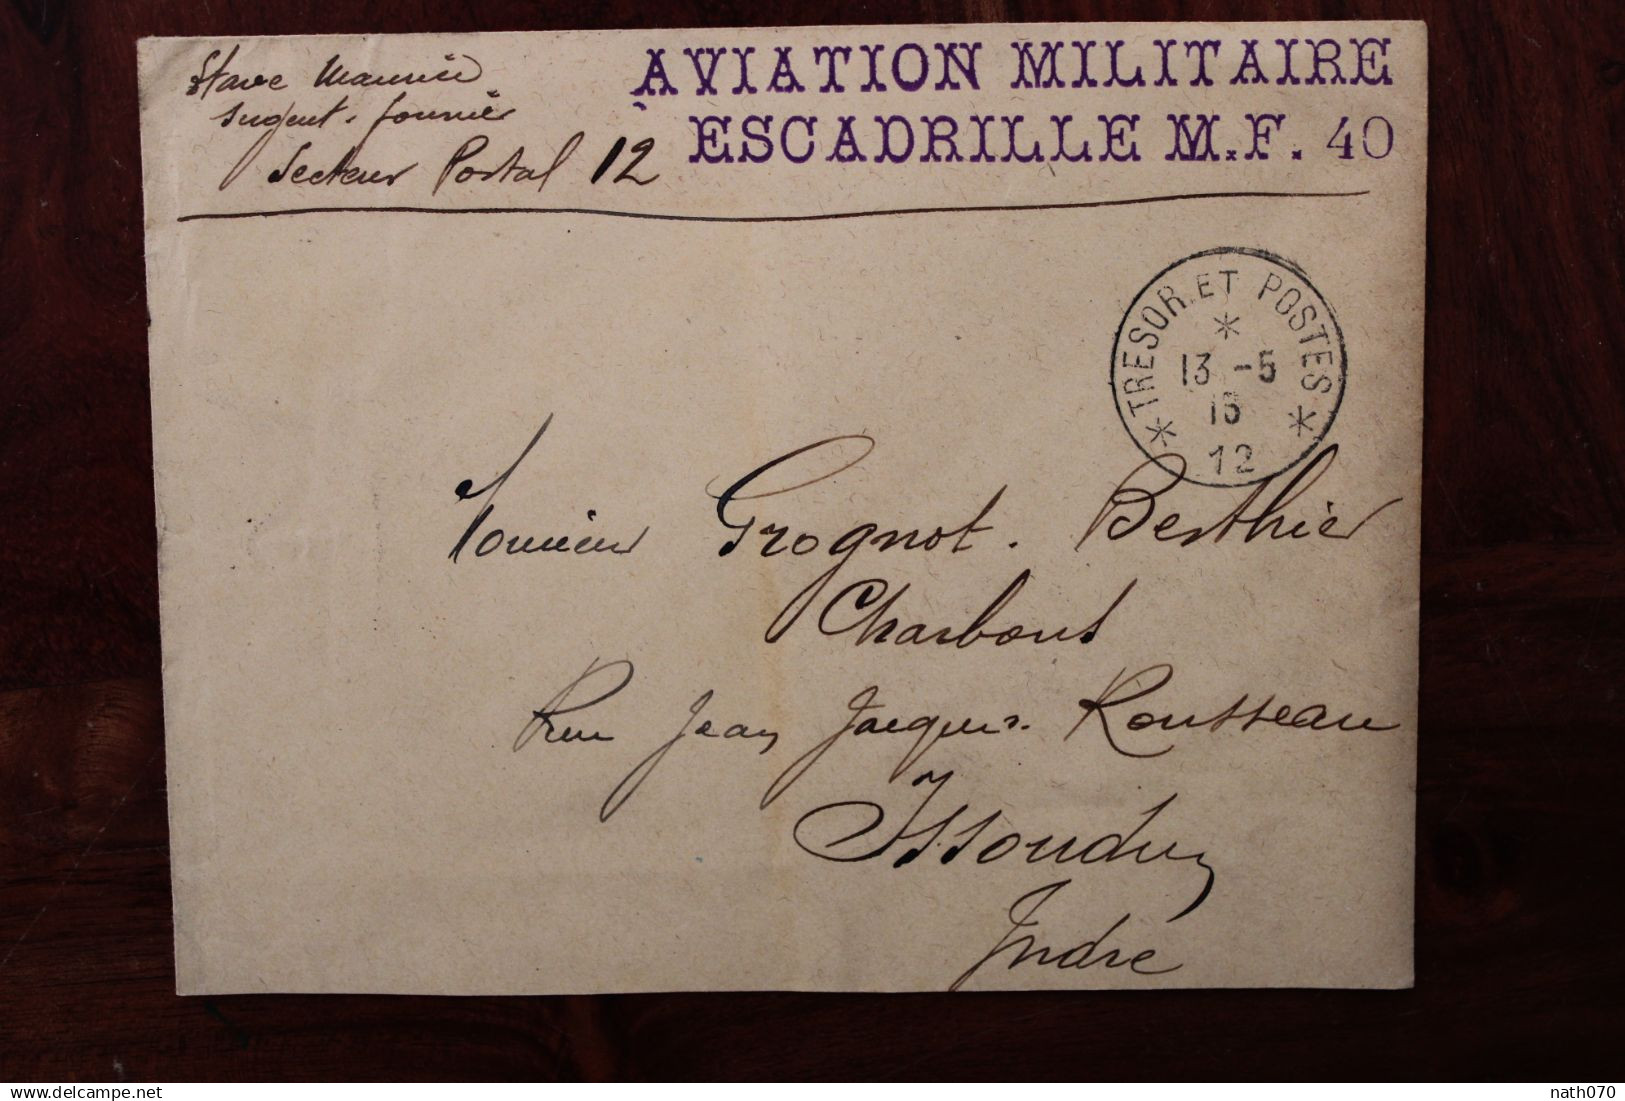 AVIATION MILITAIRE
ESCADRILLE M.F. 40
Stave Maurice
Sergent. fourrier
Secteur Postal 12
* TRESOR ET POSTES *
*
13 -5
12
Monsieur Grognot. Berthier
Charbons
Rue Jean Jacques Rousseau
Issoudun
Indre
nath070